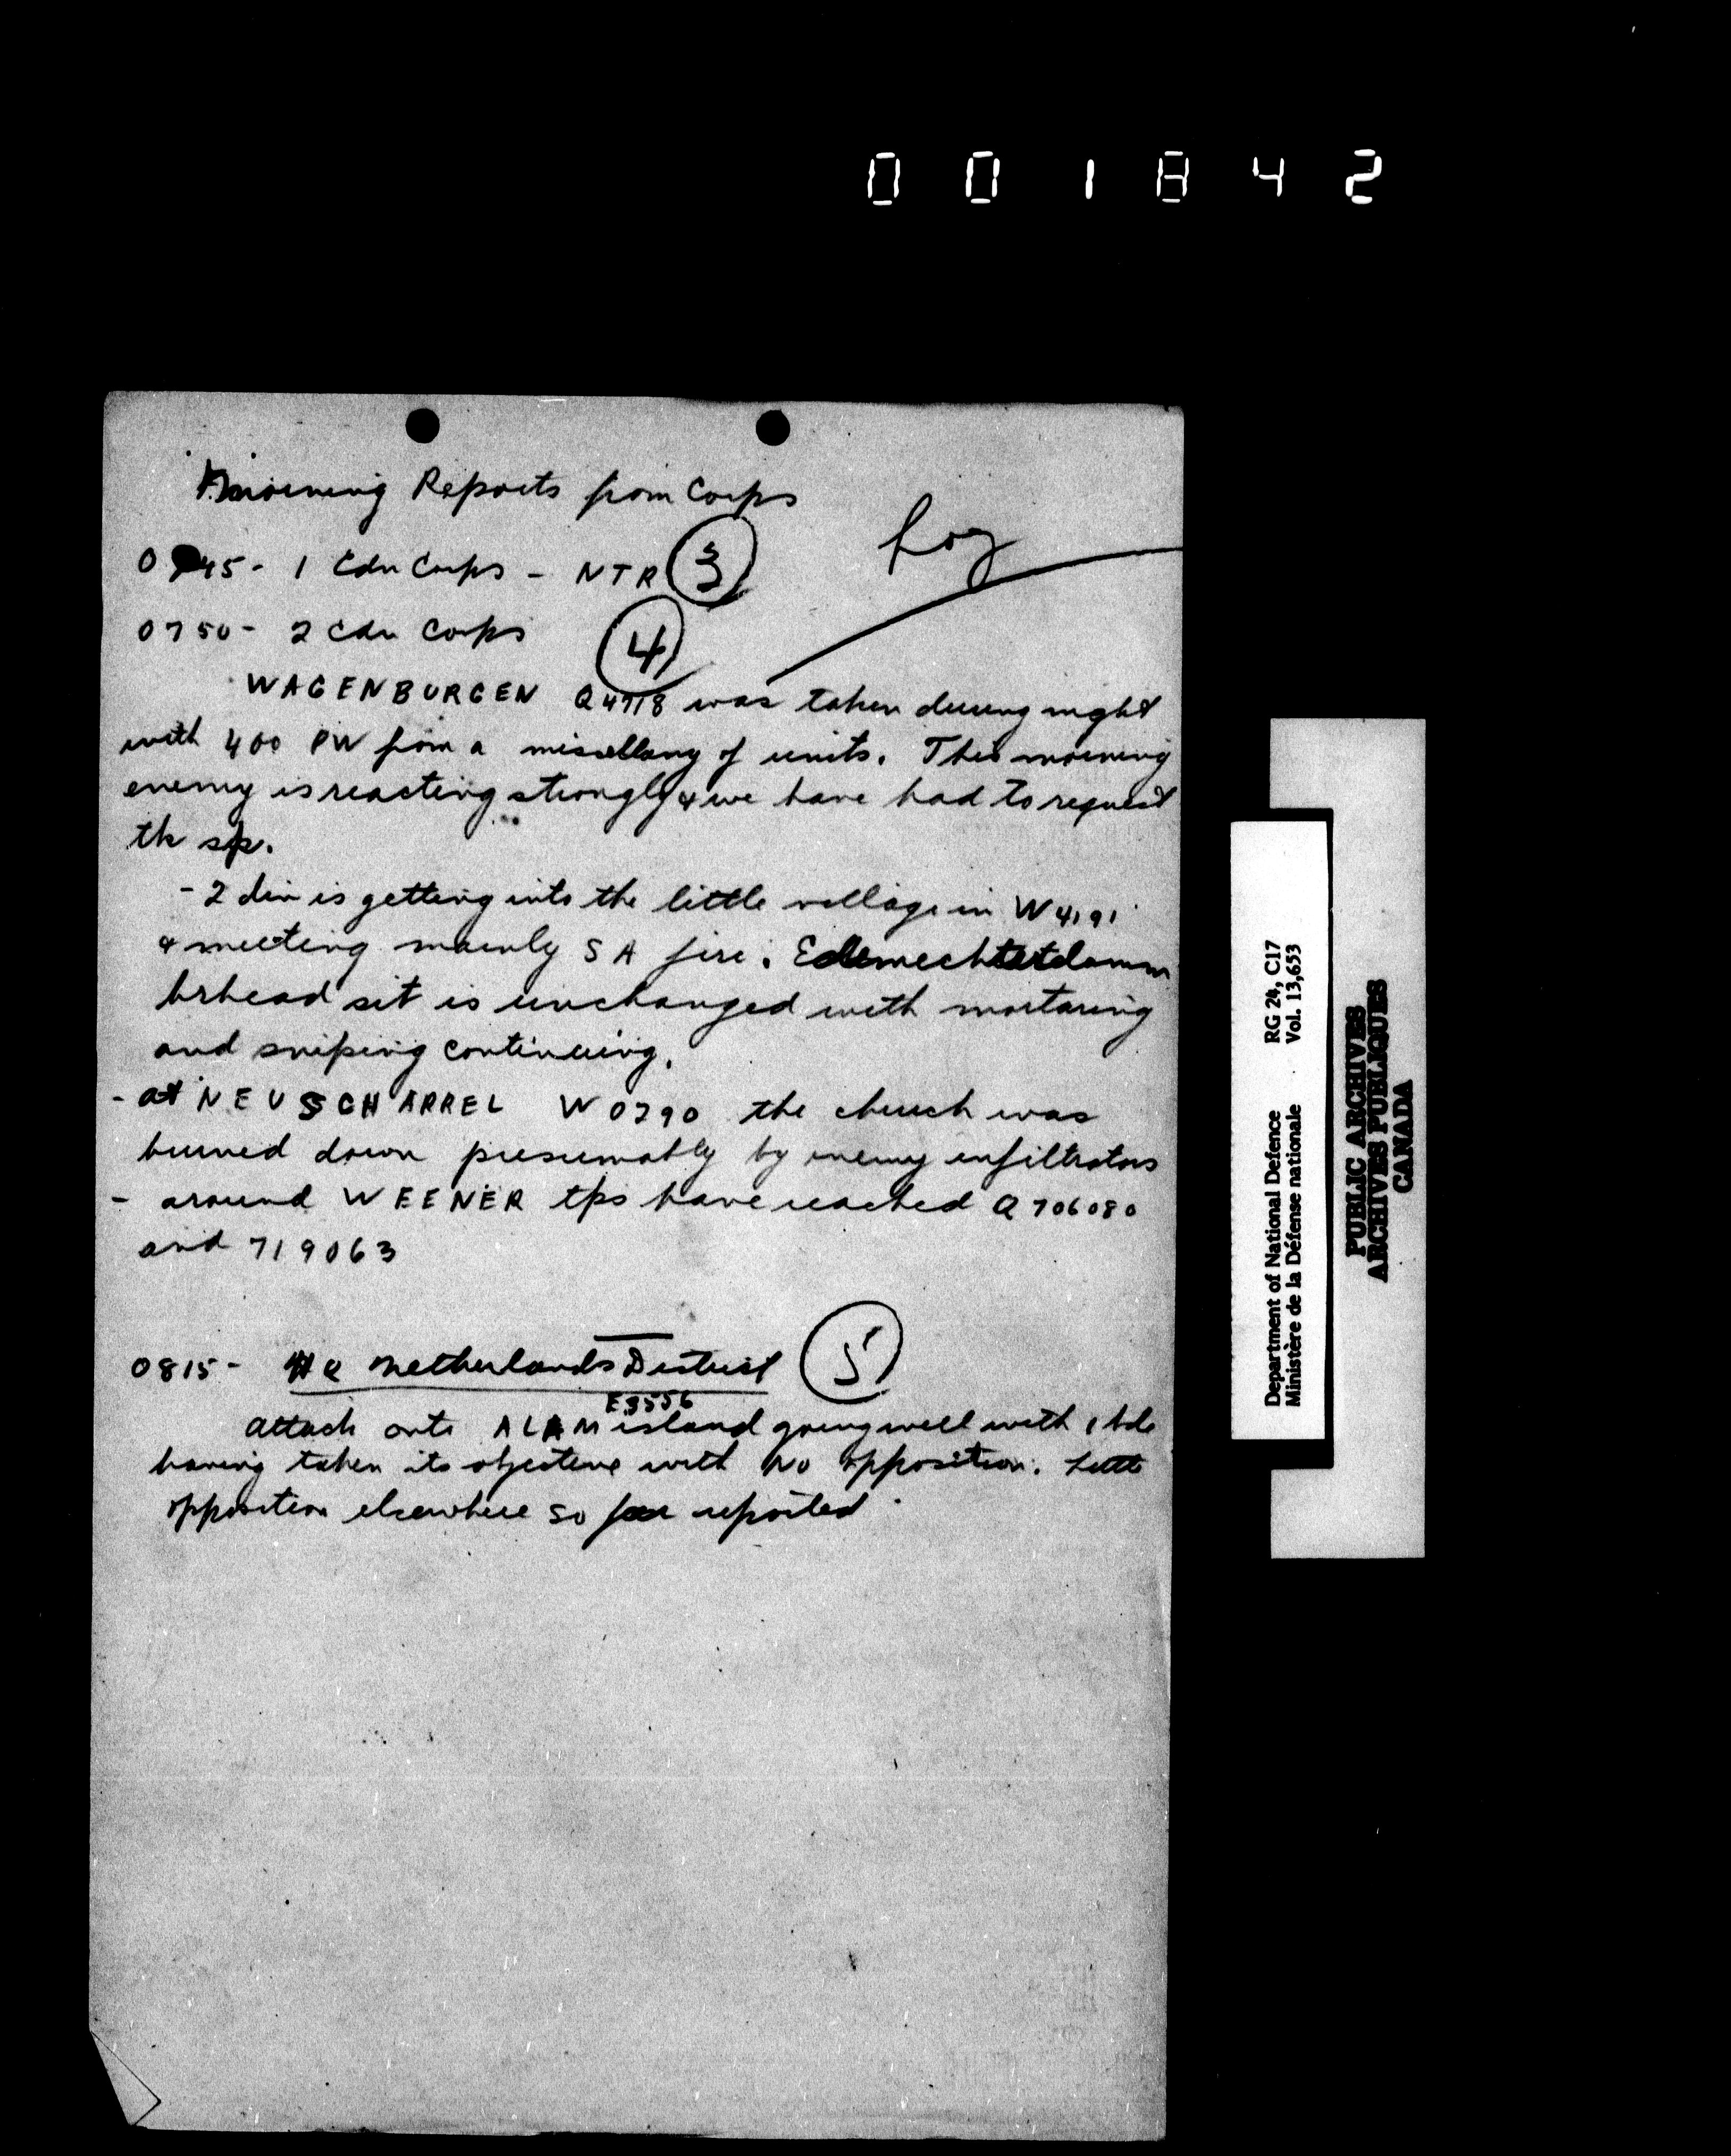 001842
Morning Reports from Corps
Log
0745 - 1 Cdn Corps - NTR 3
0750 - 2 Cdn Corps 4
WAGENBURGEN Q4718 was taken during night
with 400 PW from a miscellany of units. This morning
enemy is reacting strongly & we have had to request
tk sp.
- 2 div is getting into the little village in W4191
& meeting mainly S A fire. Edemechtetdamm
brhead sit is unchanged with mortaring
and sniping continuing.
- at NEUSCHARREL W0290 the church was
burned down presumably by enemy infiltrators
- around WEENER tps have reached Q 706080
and 719063
0815 - HQ Netherlands District 5
E3556
attack onto ALAM island going well with 1 bde
having taken its objective with no opposition. Little
opposition elsewhere so far reported
Department of National Defence RG 24, C17
Ministère de la Défense nationale Vol. 13,653
PUBLIC ARCHIVES
ARCHIVES PUBLIQUES
CANADA